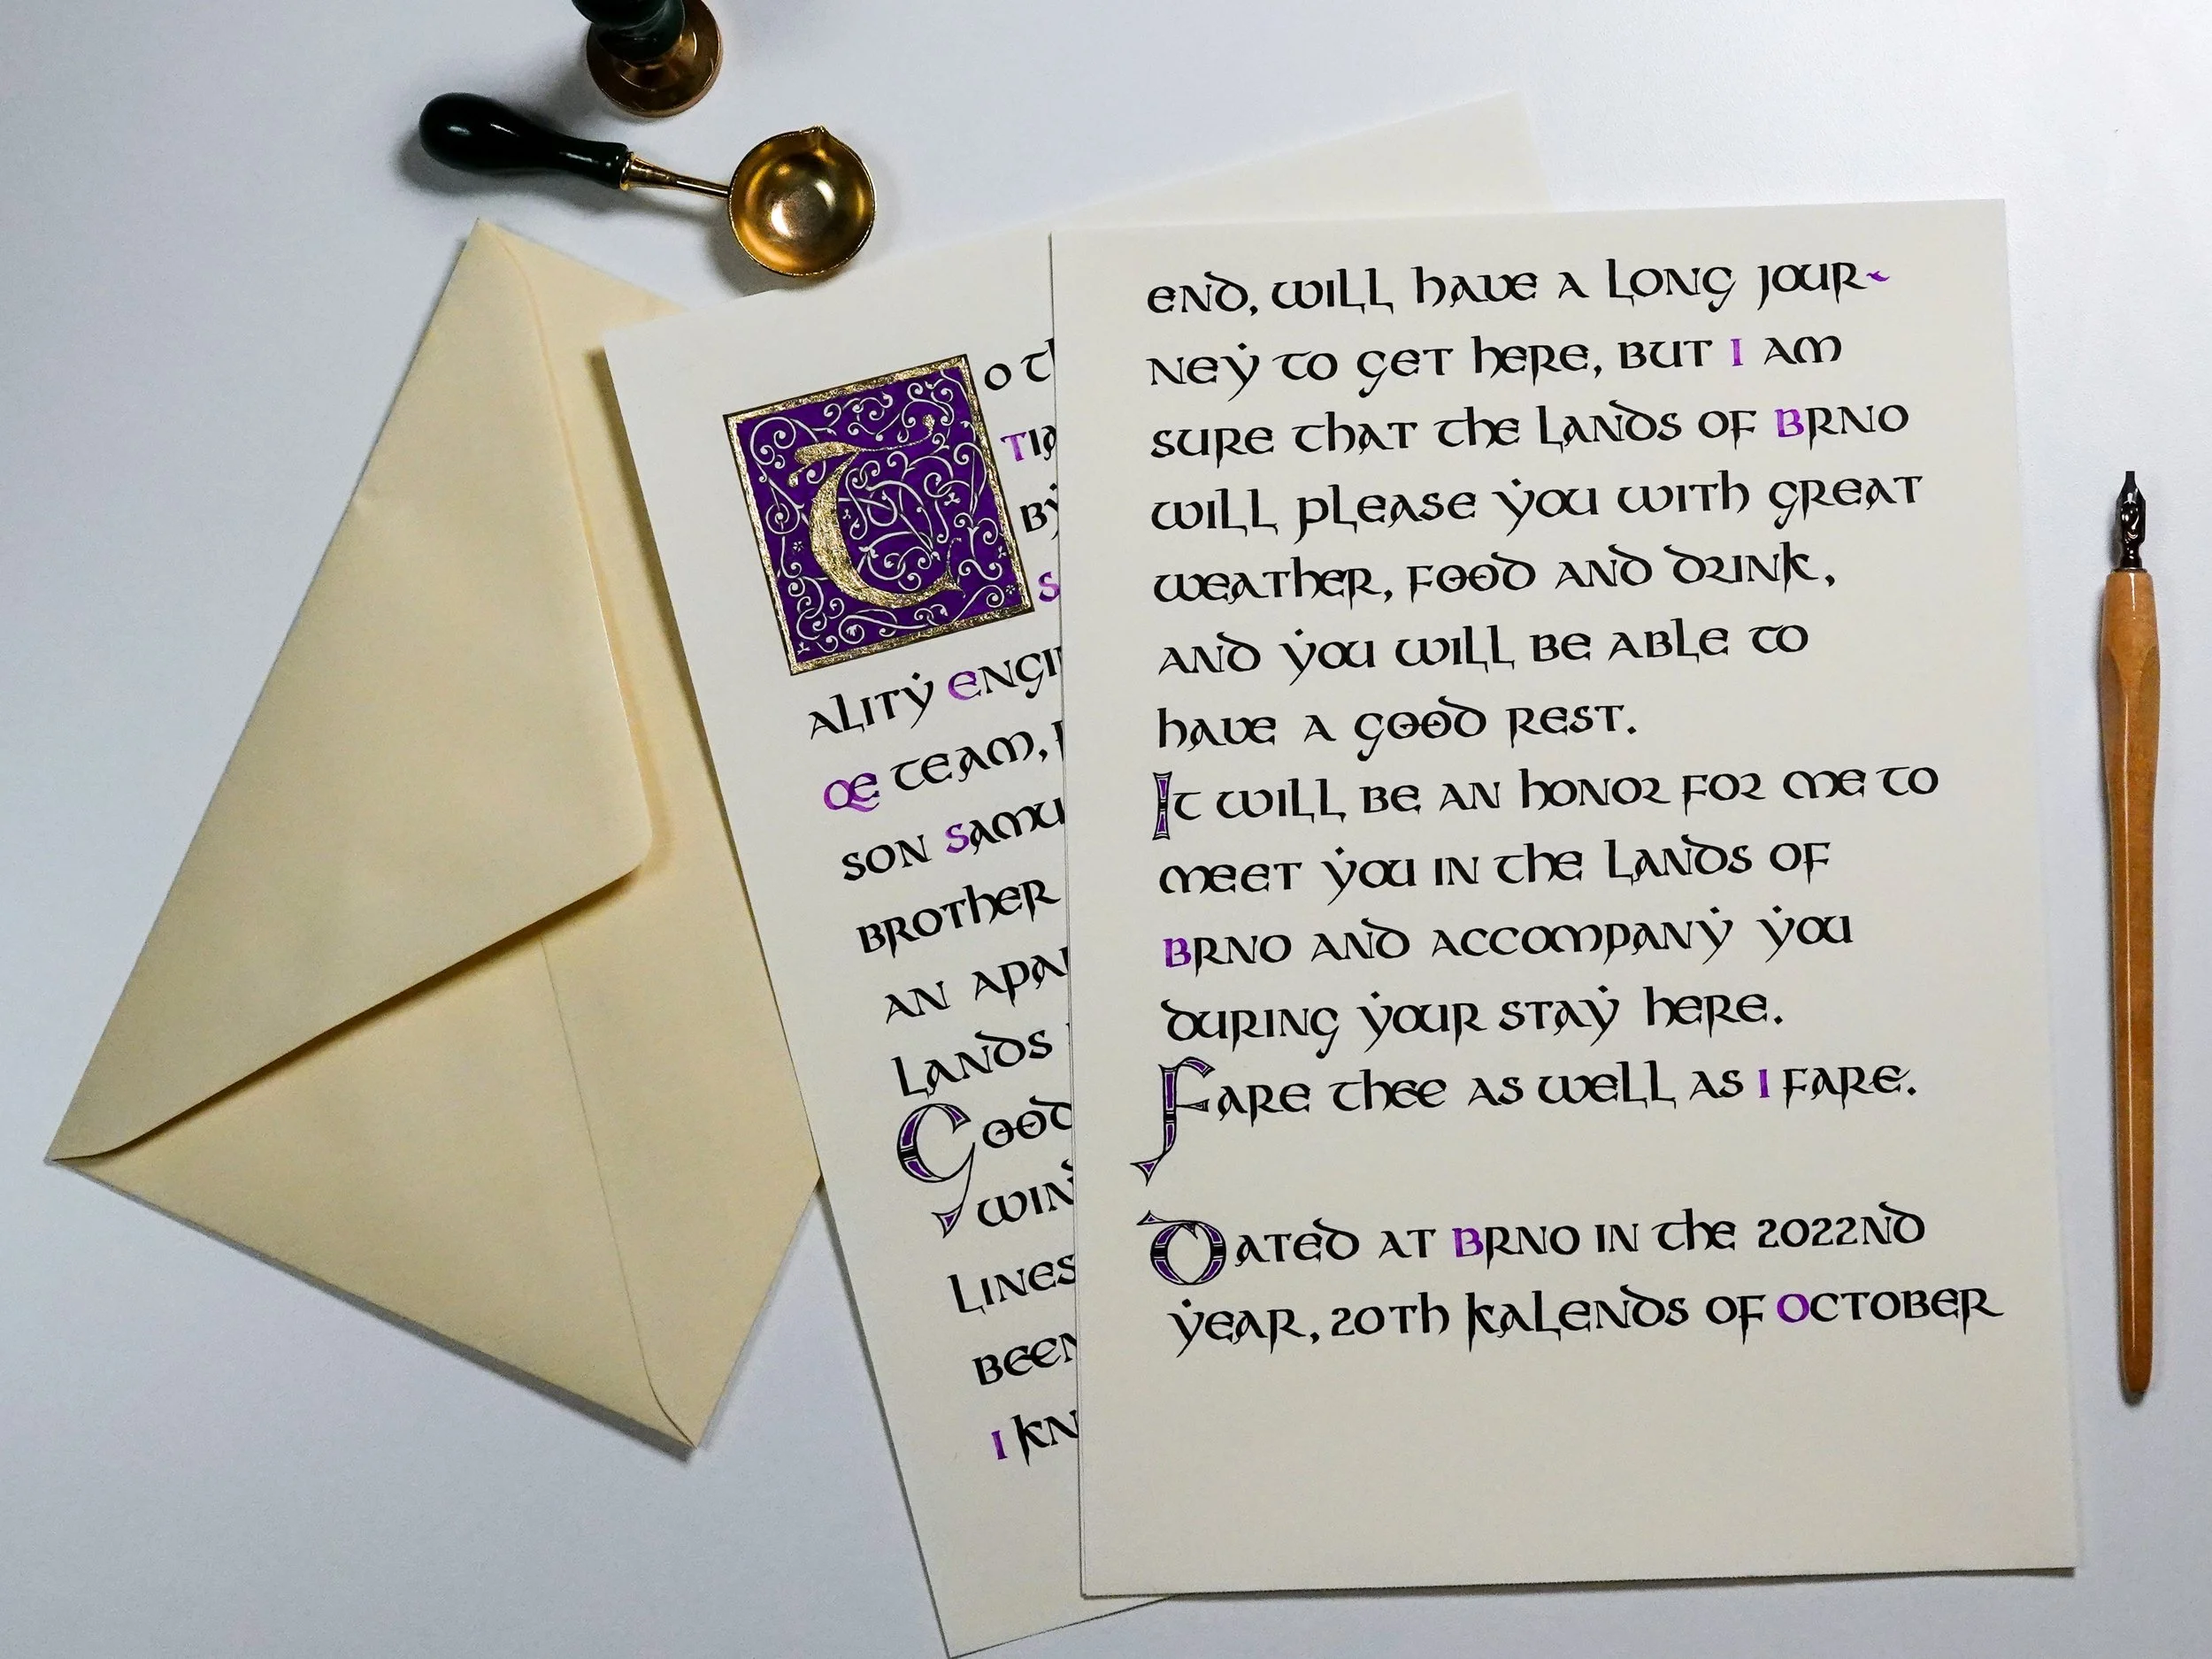 O
BY
ALITY
QE TEAM,
SON
BROTHER
AN
LANDS
LINES
I
END, WILL HAVE A LONG JOUR-
NEY TO GET HERE, BUT I AM
SURE THAT THE LANDS OF BRNO
WILL PLEASE YOU WITH GREAT
WEATHER, FOOD AND DRINK,
AND YOU WILL BE ABLE TO
HAVE A GOOD REST.
IT WILL BE AN HONOR FOR ME TO
MEET YOU IN THE LANDS OF
BRNO AND ACCOMPANY YOU
DURING YOUR STAY HERE.
FARE THEE AS WELL AS I FARE.
DATED AT BRNO IN THE 2022ND
YEAR, 20TH KALENDS OF OCTOBER